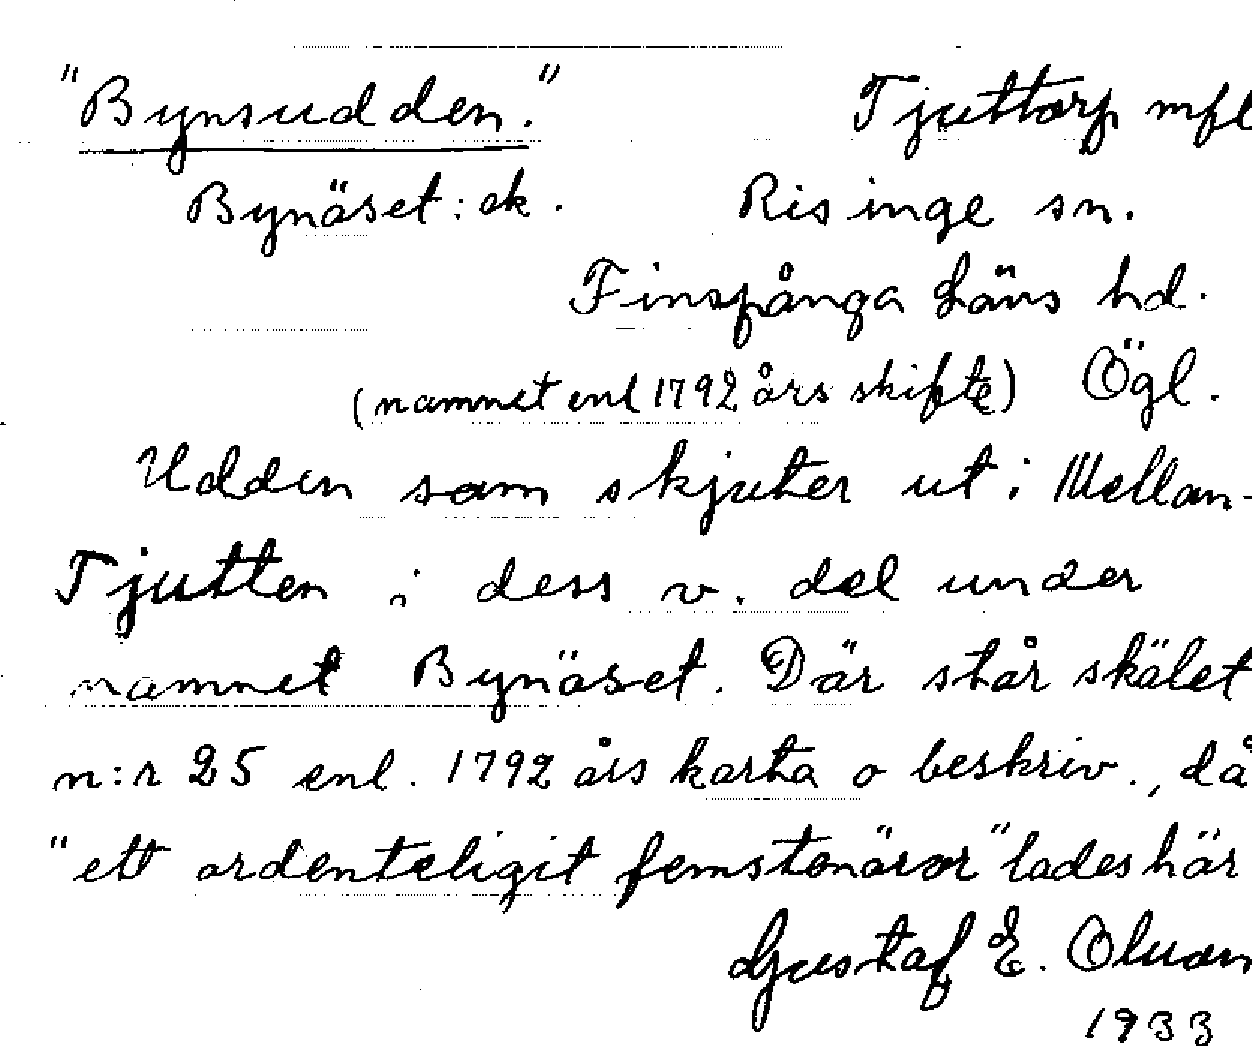 "Bynsudden." Tjuttorp mfl
Bynäset: ek. Risinge sn.
Finspånga Läns hd.
(namnet enl 1792 års skifte) Ögl.
Udden som skjuter ut i Mellan-
Tjutten i dess v. del under
namnet Bynäset. Där står skälet
n:r 25 enl. 1792 års karta o beskriv., då
"ett ordenteligit femstenärör" lades här
Gustaf E.
1933